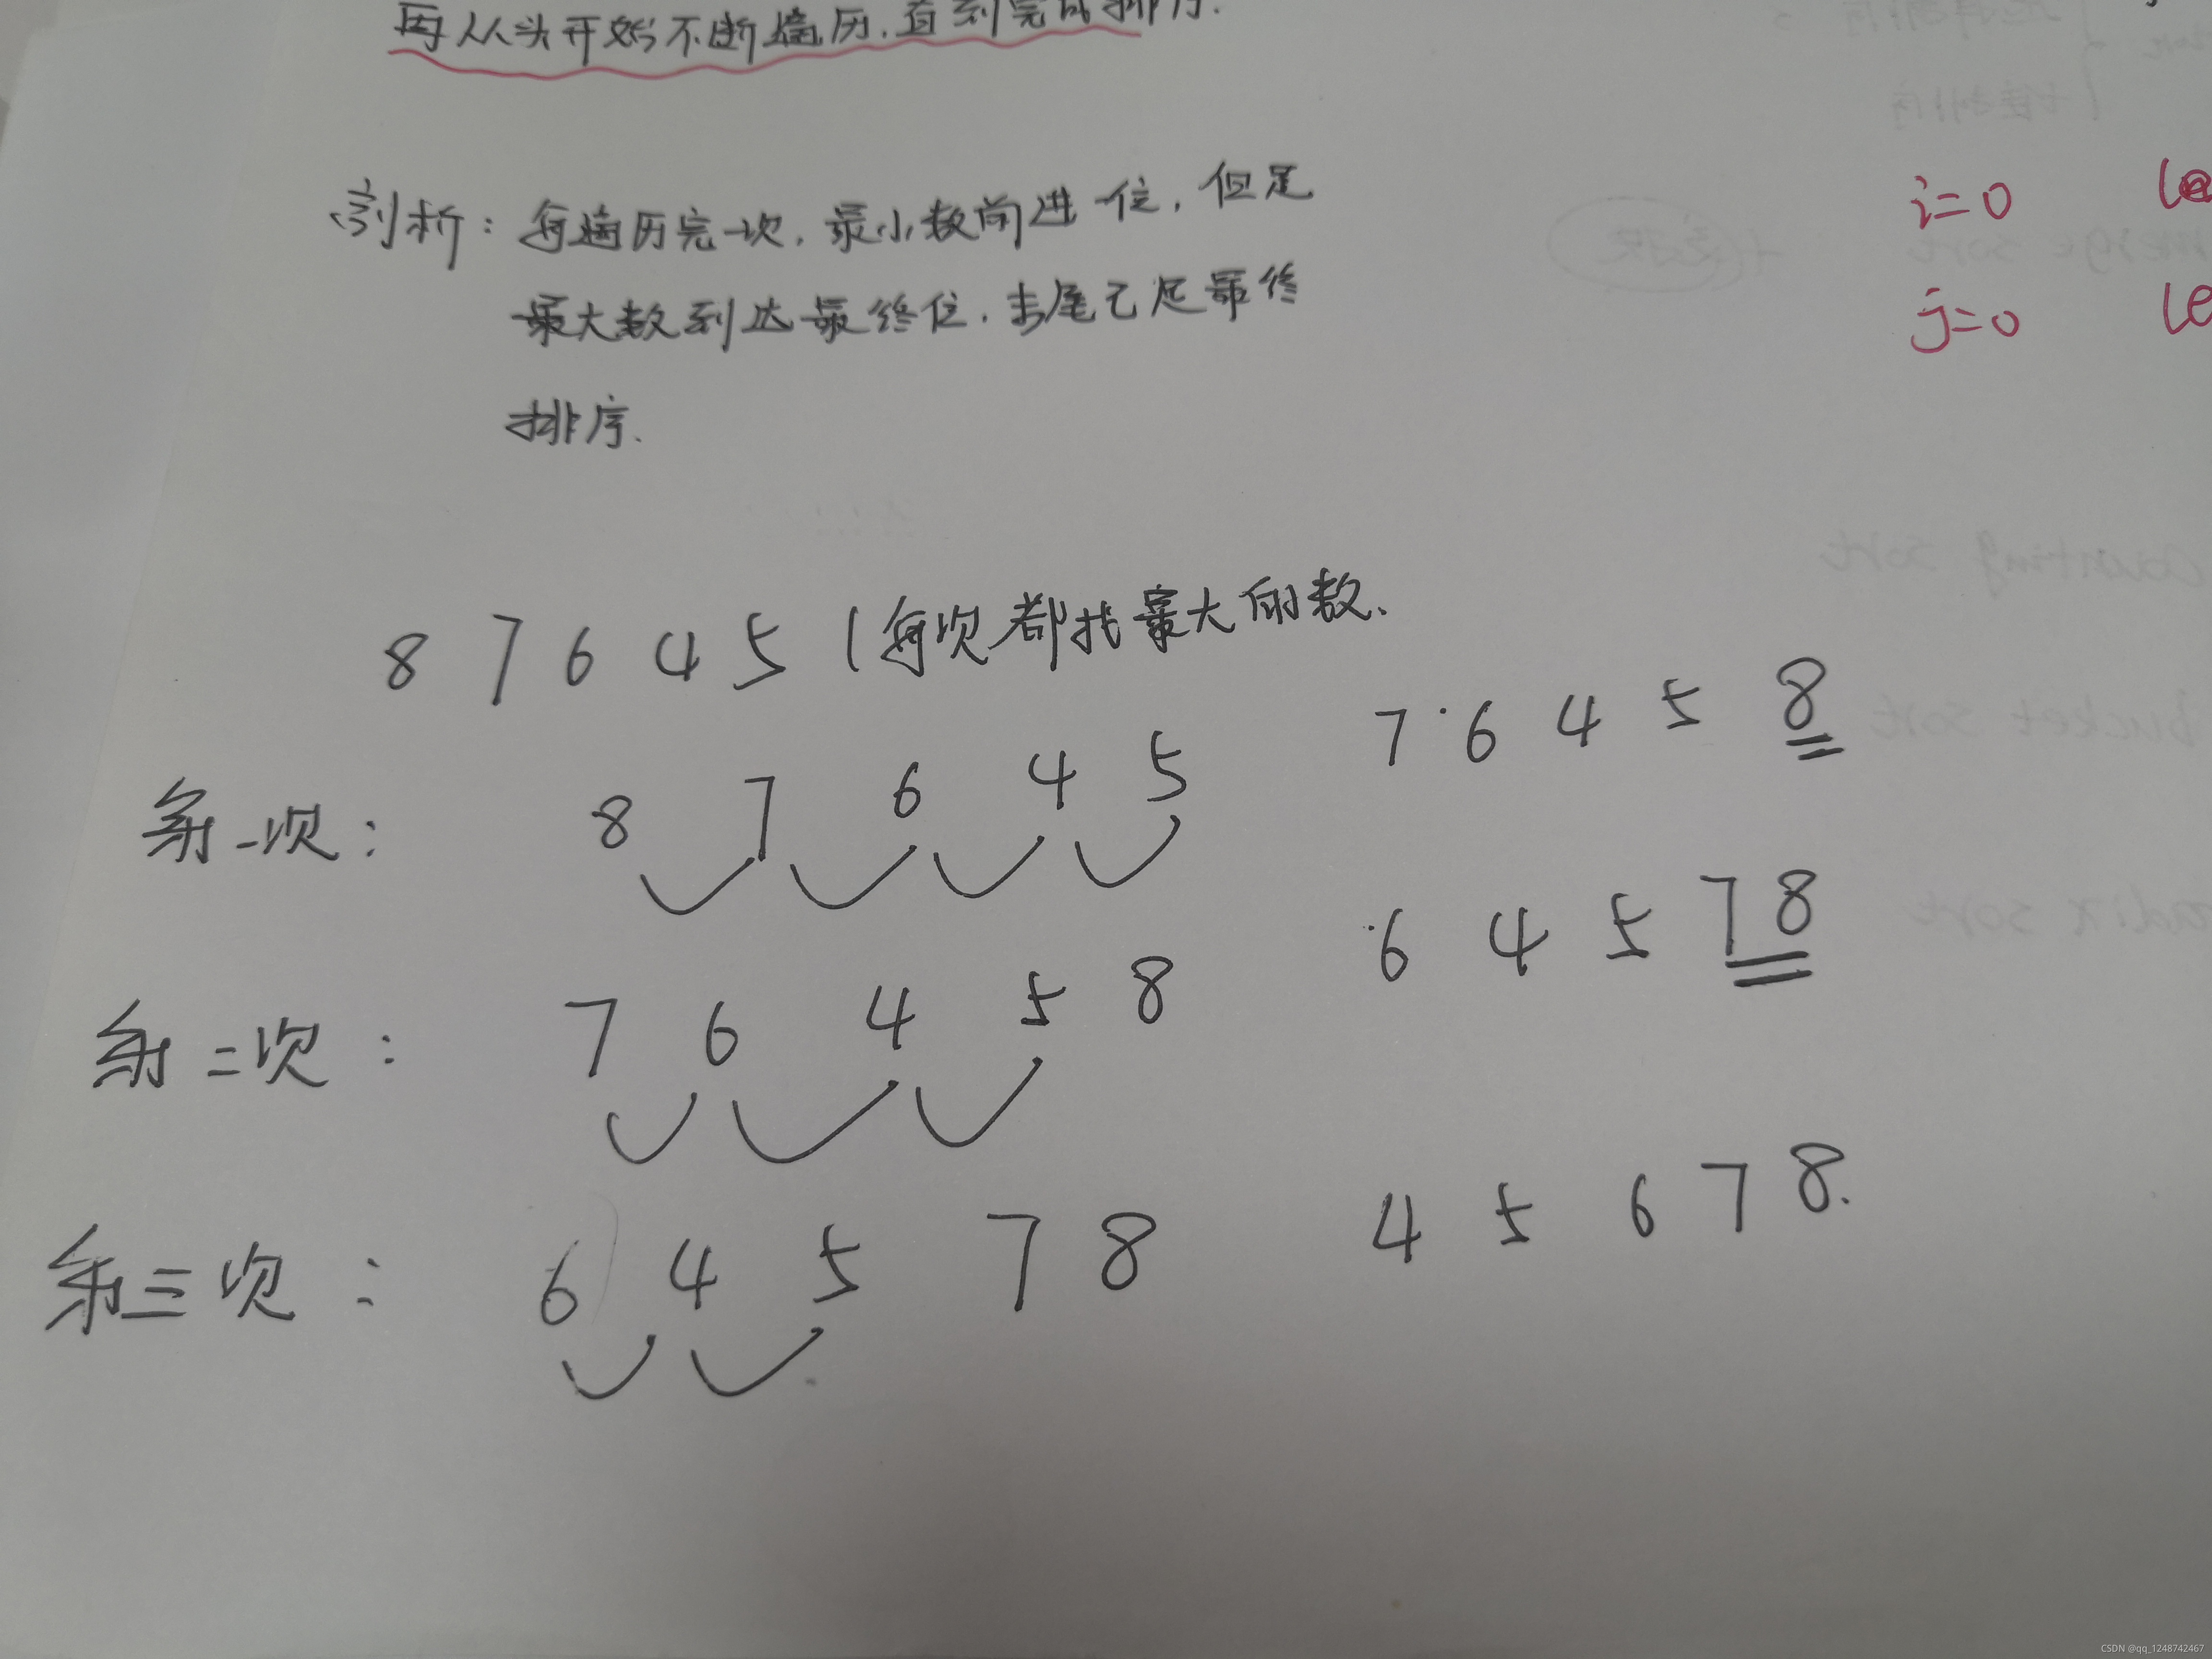 再从头开始不断遍历,直到完成排序.
剖析: 每遍历完一次, 最小数前进一位, 但是
最大数到达最终位, 末尾已是最终
排序.
i=0
j=0
8 7 6 4 5 (每次都找最大的数.
第一次: 8 7 6 4 5 7 6 4 5 8
第二次: 7 6 4 5 8 6 4 5 7 8
第三次: 6 4 5 7 8 4 5 6 7 8.
counting sort
bucket sort
merge sort
CSDN @qq_1248742467